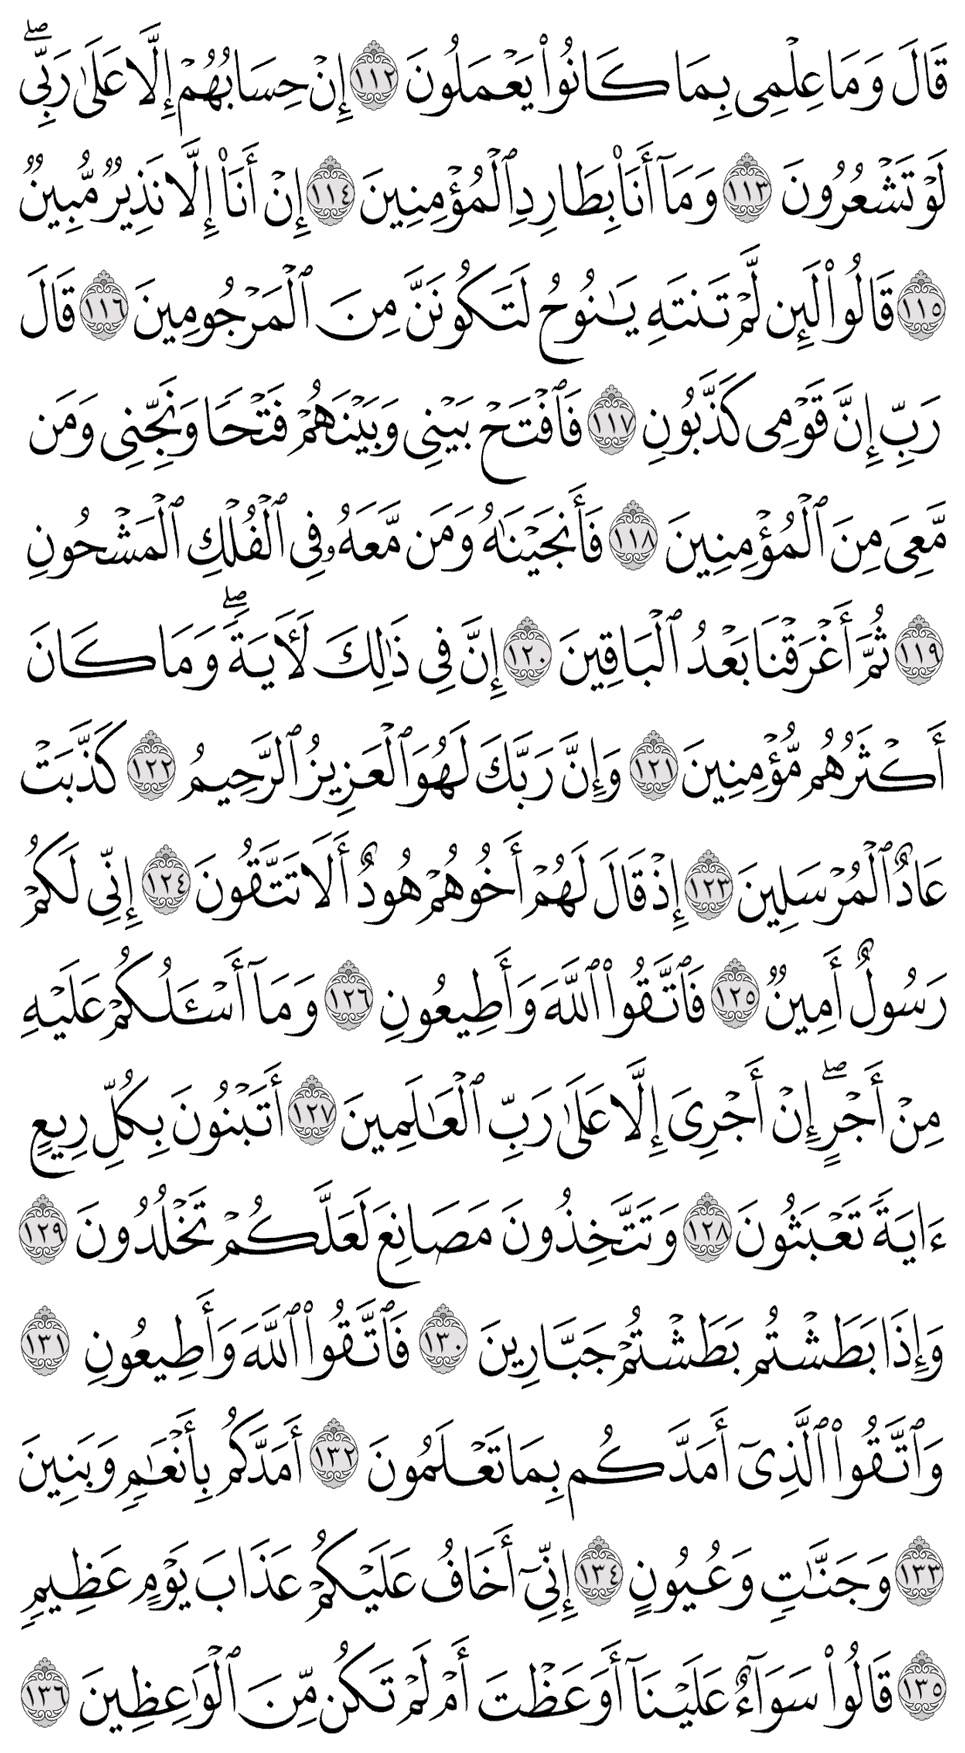 قَالَ وَمَا عِلْمِى بِمَا كَانُوا۟ يَعْمَلُونَ ١١٢ إِنْ حِسَابُهُمْ إِلَّا عَلَىٰ رَبِّى ۖ
لَوْ تَشْعُرُونَ ١١٣ وَمَآ أَنَا۠ بِطَارِدِ ٱلْمُؤْمِنِينَ ١١٤ إِنْ أَنَا۠ إِلَّا نَذِيرٌ مُّبِينٌ
١١٥ قَالُوا۟ لَئِن لَّمْ تَنتَهِ يَـٰنُوحُ لَتَكُونَنَّ مِنَ ٱلْمَرْجُومِينَ ١١٦ قَالَ
رَبِّ إِنَّ قَوْمِى كَذَّبُونِ ١١٧ فَٱفْتَحْ بَيْنِى وَبَيْنَهُمْ فَتْحًا وَنَجِّنِى وَمَن
مَّعِىَ مِنَ ٱلْمُؤْمِنِينَ ١١٨ فَأَنجَيْنَـٰهُ وَمَن مَّعَهُۥ فِى ٱلْفُلْكِ ٱلْمَشْحُونِ
١١٩ ثُمَّ أَغْرَقْنَا بَعْدُ ٱلْبَاقِينَ ١٢٠ إِنَّ فِى ذَٰلِكَ لَـَٔايَةً ۖ وَمَا كَانَ
أَكْثَرُهُم مُّؤْمِنِينَ ١٢١ وَإِنَّ رَبَّكَ لَهُوَ ٱلْعَزِيزُ ٱلرَّحِيمُ ١٢٢ كَذَّبَتْ
عَادٌ ٱلْمُرْسَلِينَ ١٢٣ إِذْ قَالَ لَهُمْ أَخُوهُمْ هُودٌ أَلَا تَتَّقُونَ ١٢٤ إِنِّى لَكُمْ
رَسُولٌ أَمِينٌ ١٢٥ فَٱتَّقُوا۟ ٱللَّهَ وَأَطِيعُونِ ١٢٦ وَمَآ أَسْـَٔلُكُمْ عَلَيْهِ
مِنْ أَجْرٍ ۖ إِنْ أَجْرِىَ إِلَّا عَلَىٰ رَبِّ ٱلْعَـٰلَمِينَ ١٢٧ أَتَبْنُونَ بِكُلِّ رِيعٍ
ءَايَةً تَعْبَثُونَ ١٢٨ وَتَتَّخِذُونَ مَصَانِعَ لَعَلَّكُمْ تَخْلُدُونَ ١٢٩
وَإِذَا بَطَشْتُم بَطَشْتُمْ جَبَّارِينَ ١٣٠ فَٱتَّقُوا۟ ٱللَّهَ وَأَطِيعُونِ ١٣١
وَٱتَّقُوا۟ ٱلَّذِىٓ أَمَدَّكُم بِمَا تَعْلَمُونَ ١٣٢ أَمَدَّكُم بِأَنْعَـٰمٍ وَبَنِينَ
١٣٣ وَجَنَّـٰتٍ وَعُيُونٍ ١٣٤ إِنِّىٓ أَخَافُ عَلَيْكُمْ عَذَابَ يَوْمٍ عَظِيمٍ
١٣٥ قَالُوا۟ سَوَآءٌ عَلَيْنَآ أَوَعَظْتَ أَمْ لَمْ تَكُن مِّنَ ٱلْوَٰعِظِينَ ١٣٦